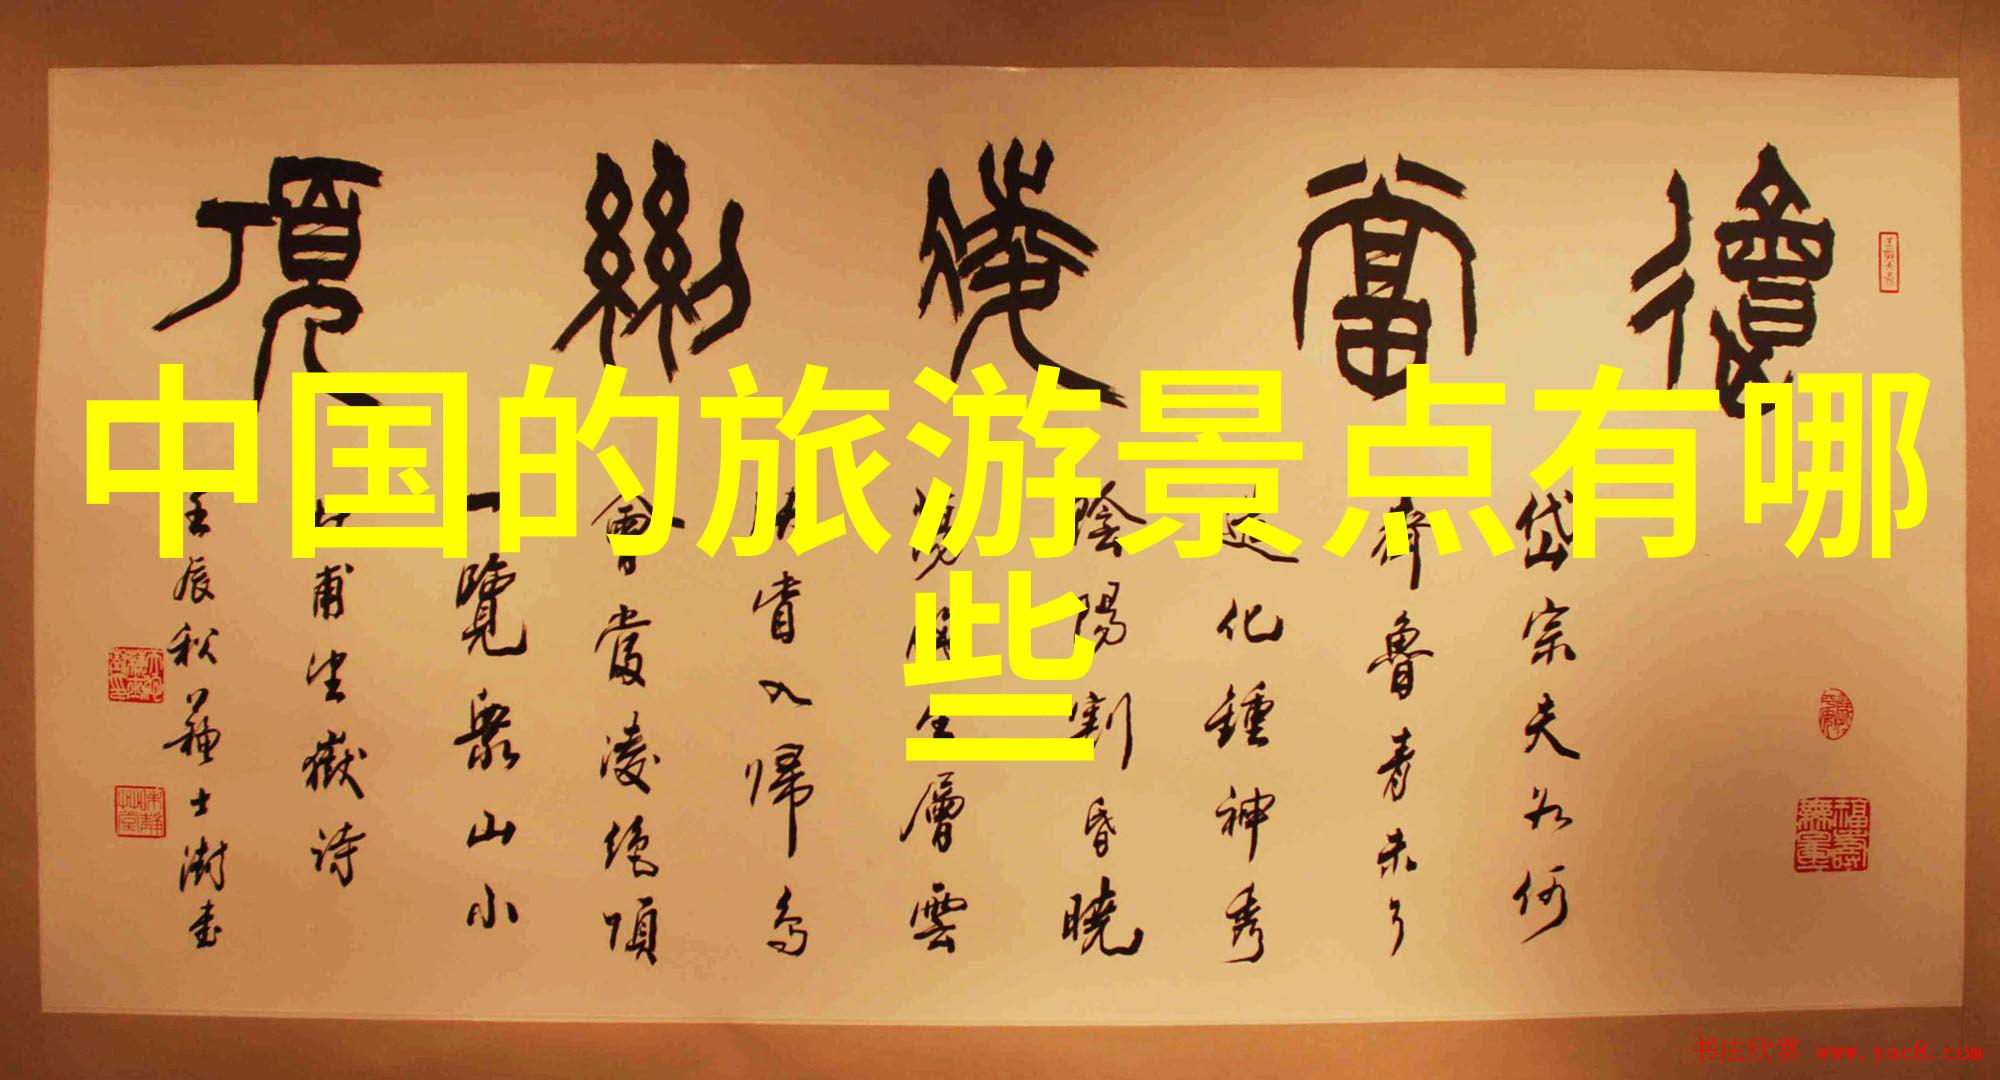 會當凌絕頂
岱宗夫如何
齊魯青未了
造化鍾神秀
陰陽割昏曉
層雲
入歸鳥
會當凌絕頂
一覽眾山小
甫望嶽詩
壬辰秋蘇士澍書
中国的旅游景点有哪
些
书法欣赏 www.yac8.com